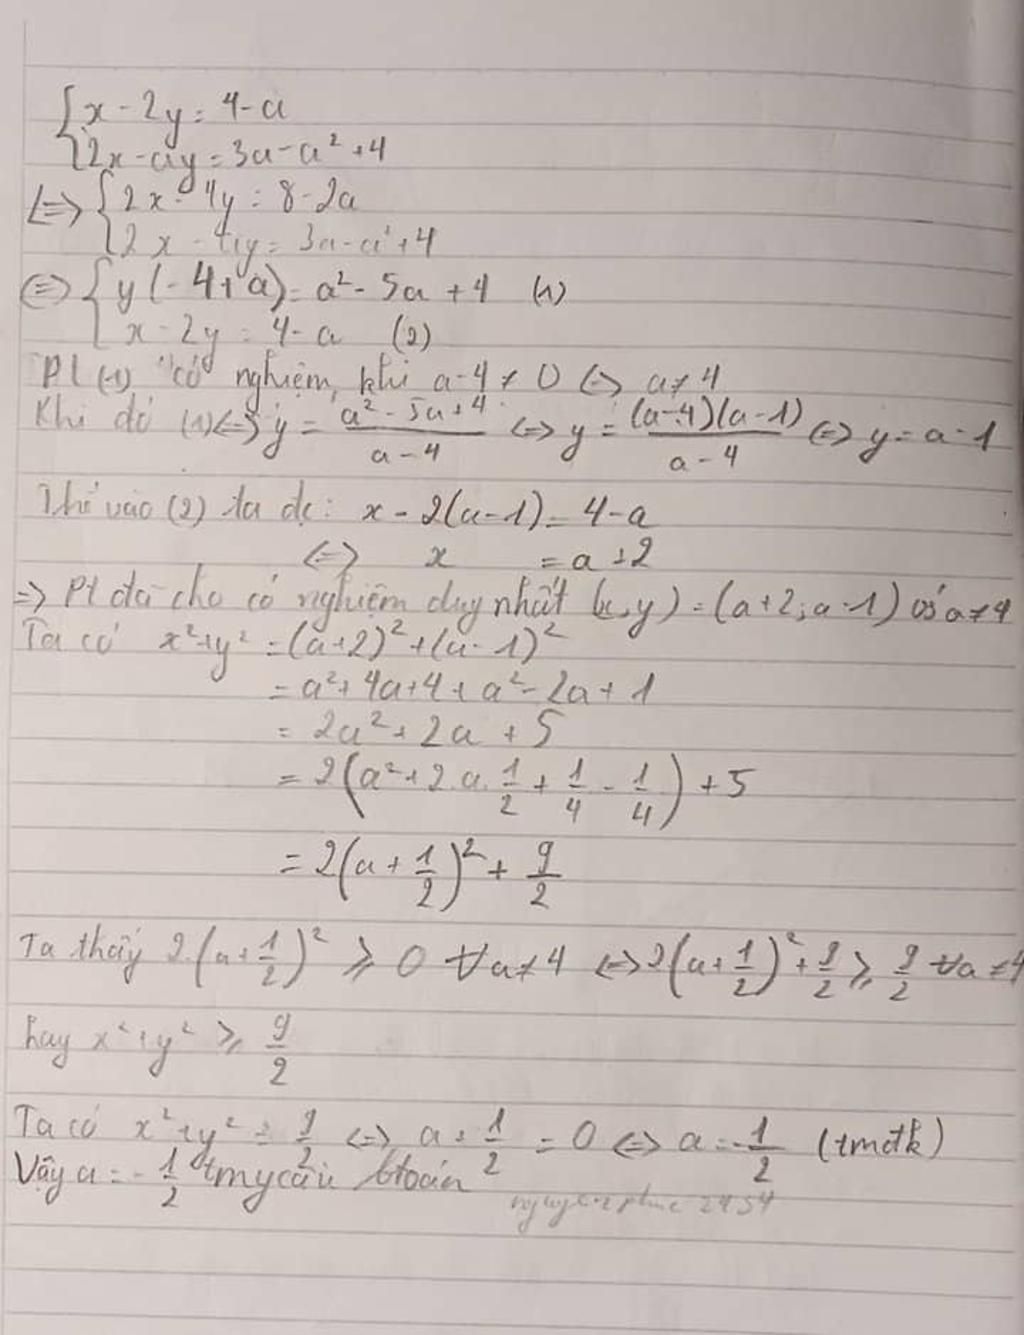 { x - 2y = 4 - a
2x - ay = 3a - a² + 4
<=> { 2x - 4y = 8 - 2a
2x - ay = 3a - a² + 4
<=> { y(-4 + a) = a² - 5a + 4 (1)
x - 2y = 4 - a (2)
Pt (1) có nghiệm khi a - 4 ≠ 0 <=> a ≠ 4
Khi đó (1) <=> y = (a² - 5a + 4)/(a - 4) <=> y = (a - 4)(a - 1)/(a - 4) <=> y = a - 1
Thế vào (2) ta đc: x - 2(a - 1) = 4 - a
<=> x = a + 2
=> Pt đã cho có nghiệm duy nhất (x, y) = (a + 2; a - 1) với a ≠ 4
Ta có x² + y² = (a + 2)² + (a - 1)²
= a² + 4a + 4 + a² - 2a + 1
= 2a² + 2a + 5
= 2(a² + 2.a.1/2 + 1/4 - 1/4) + 5
= 2(a + 1/2)² + 9/2
Ta thấy 2.(a + 1/2)² ⩾ 0 ∀a ≠ 4 <=> 2(a + 1/2)² + 9/2 ⩾ 9/2 ∀a ≠ 4
hay x² + y² ⩾ 9/2
Ta có x² + y² = 9/2 <=> a + 1/2 = 0 <=> a = -1/2 (tmđk)
Vậy a = -1/2 tm ycầu btoán